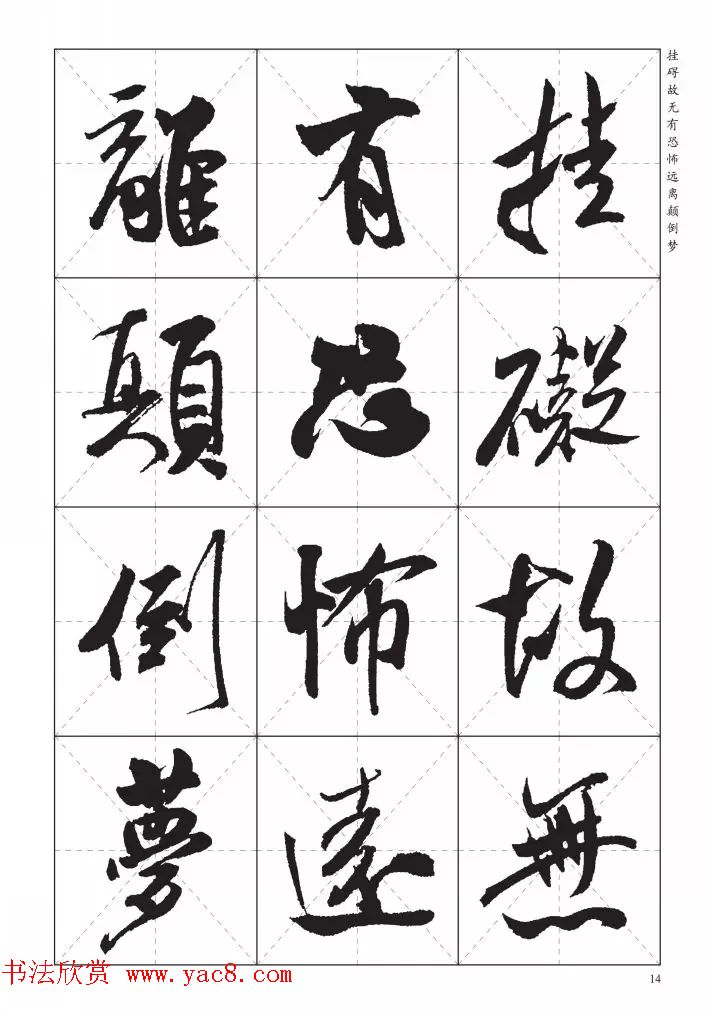 挂碍故无有恐怖远离颠倒梦
挂礙故無
有恐怖遠
離顛倒夢
书法欣赏 www.yac8.com
14